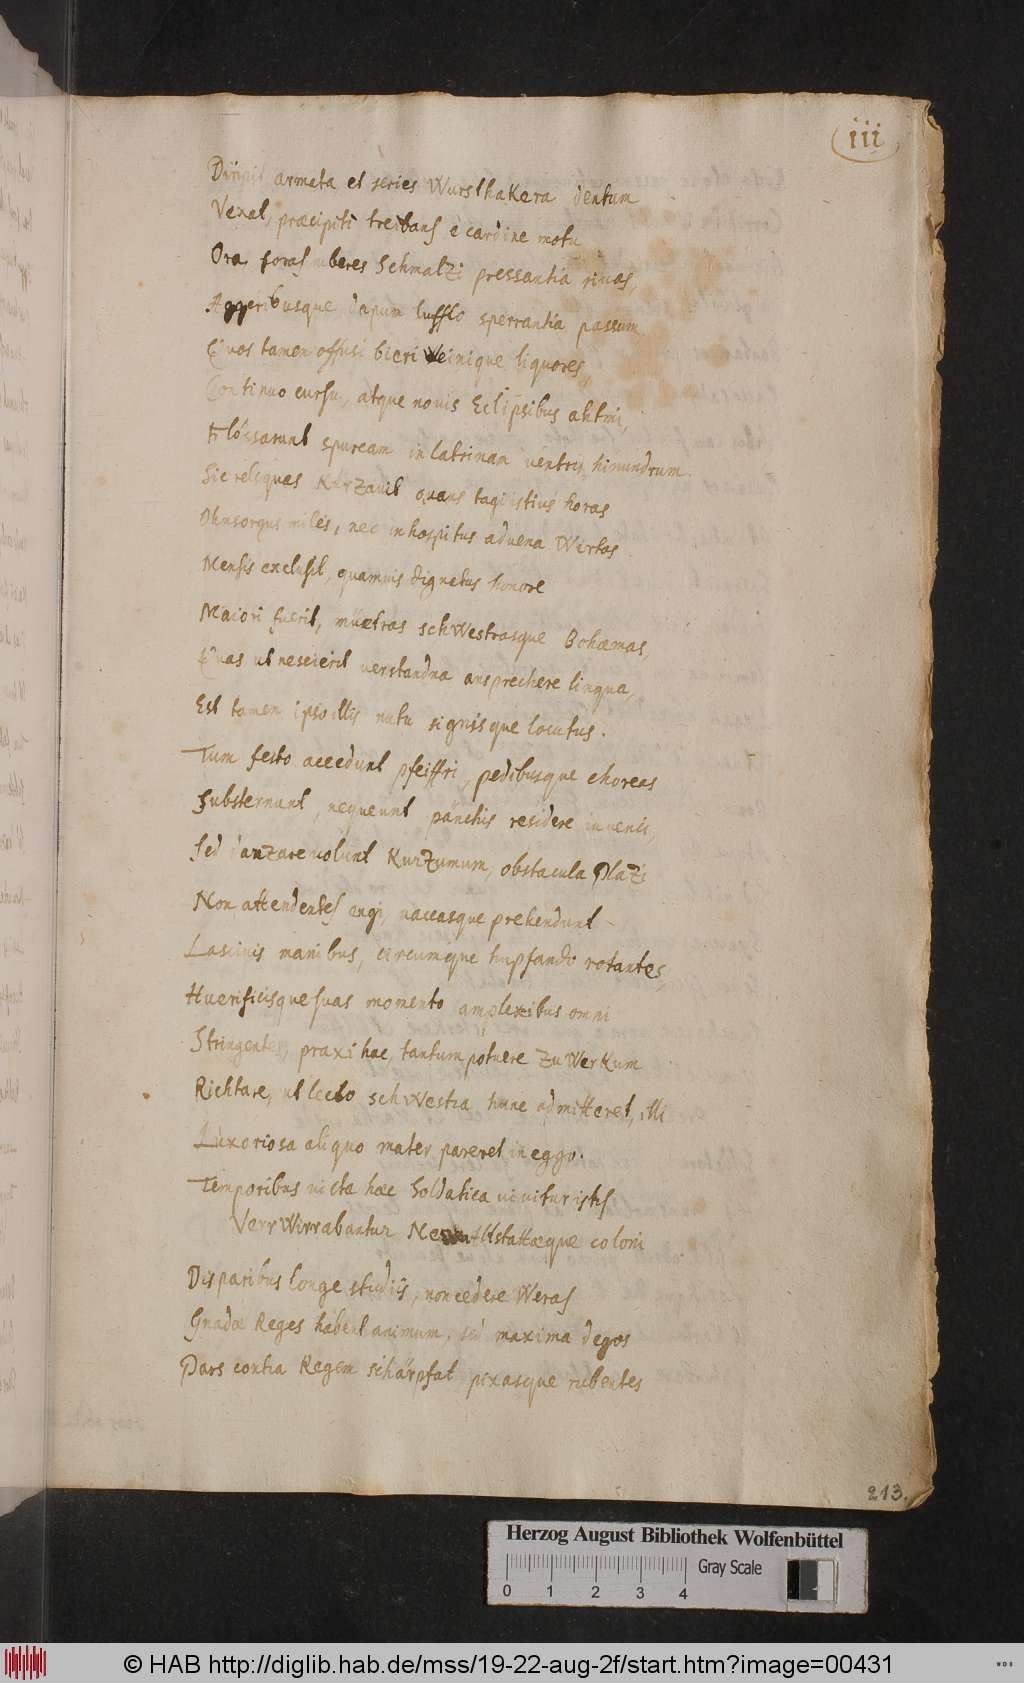 iii
Diripit armata et series Wursthakera dentum
Vexat, præcipiti treibans e cardine motu
Ora foras uberes Schmalzi pressantia rivas,
Aggeribusque dapum lufflo sperrantia passum
Quos tamen offusi bieri Weinique liquores,
Continuo cursu, atque novis Eclipsibus ahtmi,
Flössarunt spurcam in latrinam ventris hinundrum.
Sic reliquas Kürzavit quans tagi istius horas
Ohnsorgus miles, nec inhospitus advena Wirtos
Mensis exclusit, quamvis dignatus honore
Maiori fuerit, müetras schWestrasque Bohæmas,
Quas ut nescierit verstandna ansprechere lingua,
Est tamen ipso illis nutu signisque locutus.
Tum festo accedunt pfeiffri, pedibusque choreas
Substernunt, nequeunt pänckis residere iuvenes,
Sed danzare volunt Kurzumum, obstacula Plazi
Non attendentes engi, vaccasque prehendunt
Lascivis manibus, circumque hupfando rotantes
Huerificisque suas momento amplexibus omni
Stringentes, praxi hac tantum potuere zu WerKum
Richtare, ut lecto schWestra hunc admitteret, illi
Luxoriosa aliquo mater pareret in eggo.
Temporibus victa hæc Soldatica vivitur istis
VerrWirrabantur Stattæque coloni
Disparibus longe studiis, non cedere Weras
Gnadæ Reges habent animum, sed maxima degos
Pars contra Regem schärpfat pixasque rubentes
213.
Herzog August Bibliothek Wolfenbüttel
0 1 2 3 4
Gray Scale
© HAB http://diglib.hab.de/mss/19-22-aug-2f/start.htm?image=00431